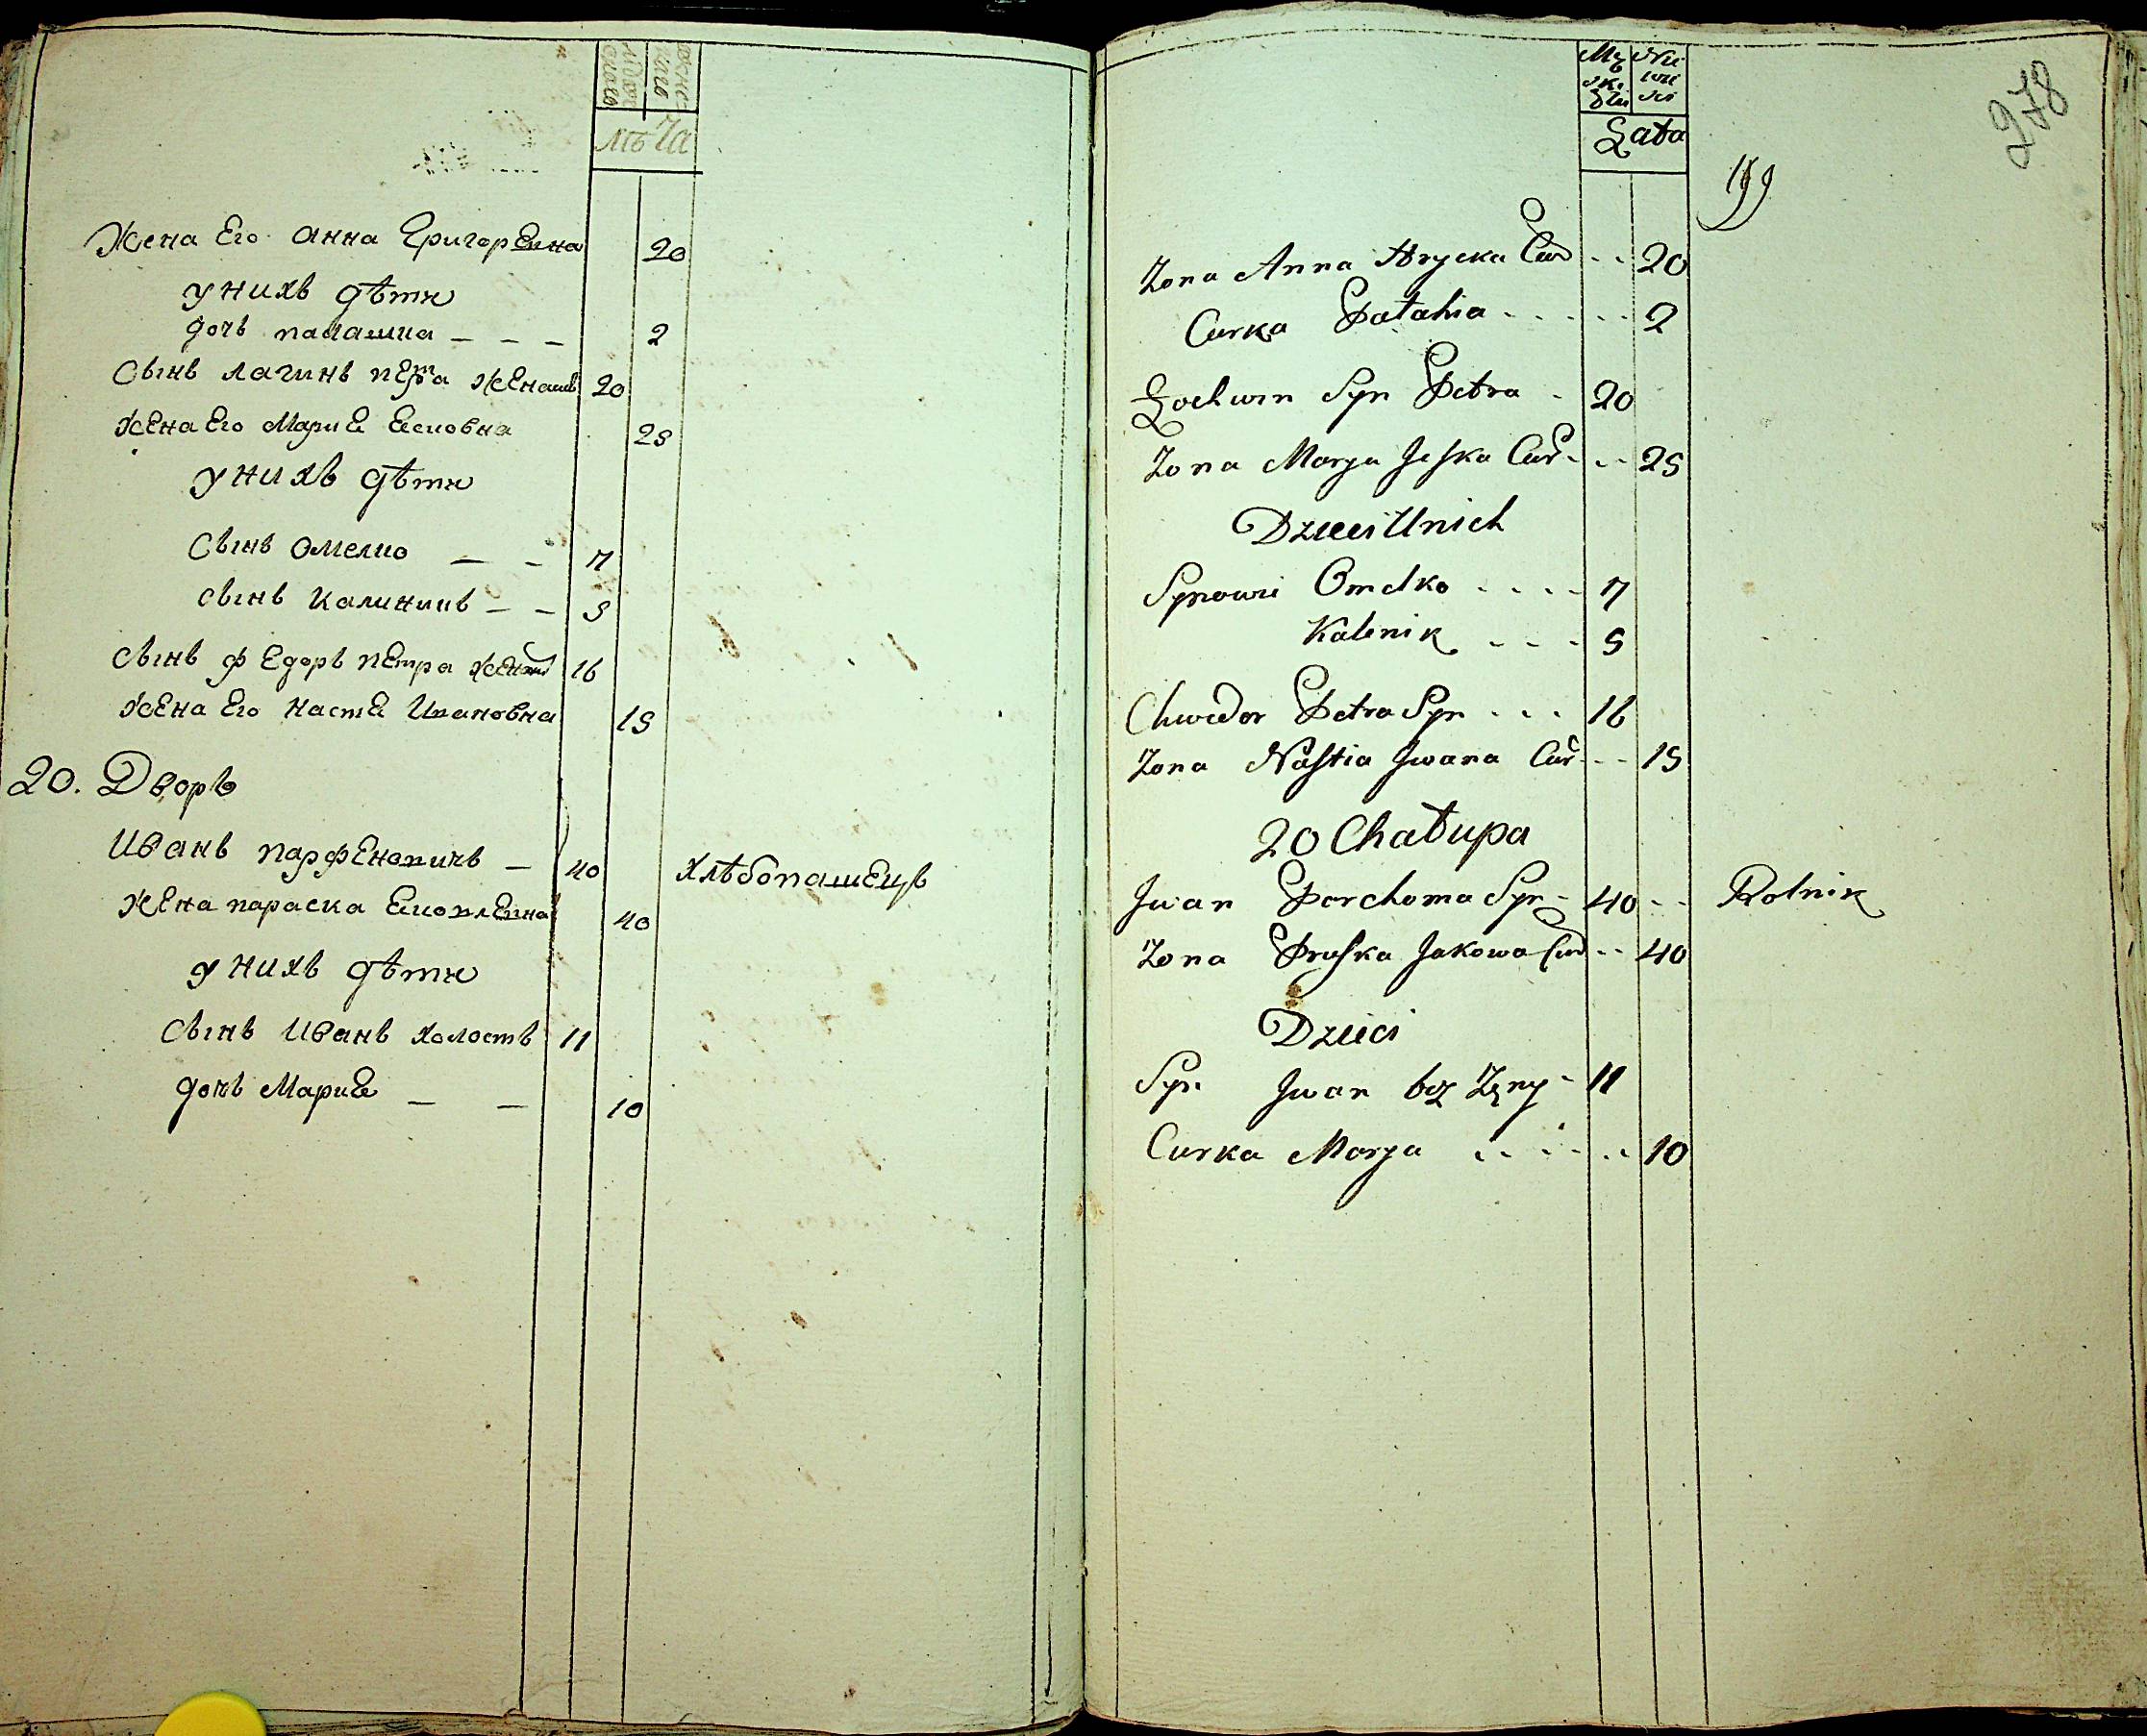 мужеска
женска
лѣта
Жена Его Анна Григорѣвна 20
у нихъ дѣти
дочь палашка — — — 2
Сынъ лагинъ петра женатъ 20
жена Его Мария Есковна 25
у нихъ дѣти
Сынъ Омелко — — 7
сынъ Калиникъ — — 5
сынъ федоръ петра женатъ 16
жена Его настя Ивановна 15
20. Дворъ
Иванъ парфеновичъ — 40 хлѣбопашецъ
жена параска Ековлевна 40
у нихъ дѣти
Сынъ Иванъ холостъ 11
дочь Мария — — 10
278
Męskzki Niewisci
Łata
199
Żona Anna Hrycka Cur 20
Curka Pałahia 2
Łochwin Syn Petra 20
Żona Marya Jeska Cur 25
Dzieci Unich
Synowie Omelko 7
Kalenik 5
Chwedor Petra Syn 16
Żona Nastia Jwana Cur 15
20 Chałupa
Jwan Parchoma Syn 40 Rolnik
Żona Pruska Jakowa Cur 40
Dzieci
Syn Jwan bez Żeny 11
Curka Marya 10